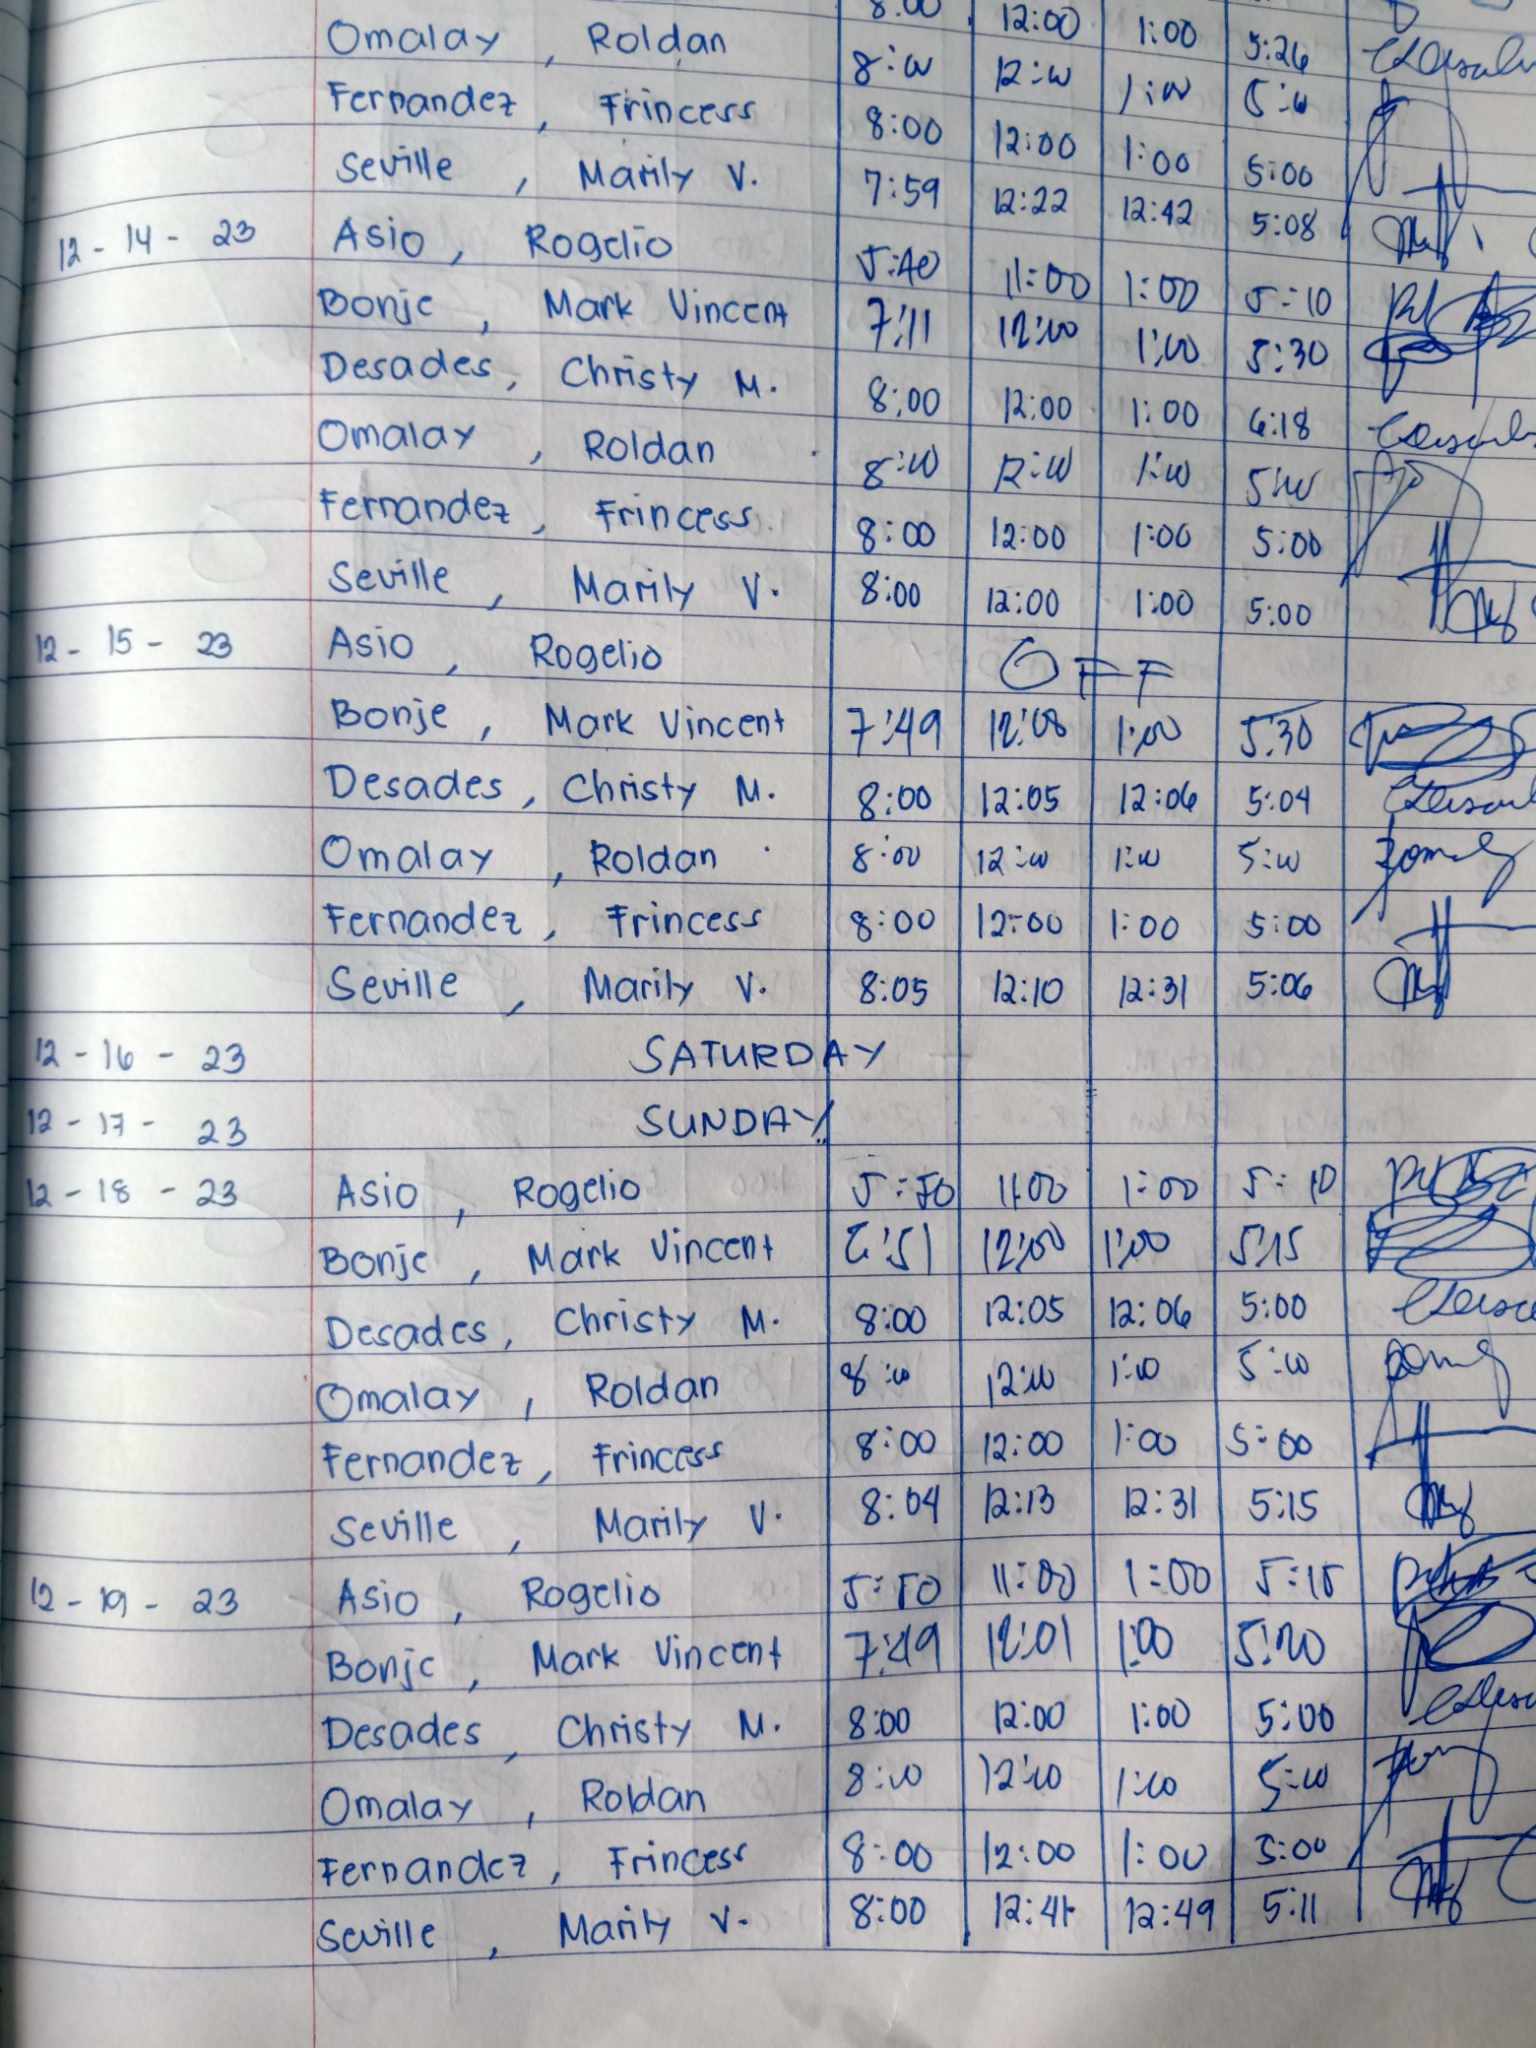 8:00 12:00 1:00 5:26
Omalay, Roldan 8:00 12:00 1:00 5:00
Fernandez, Frincess 8:00 12:00 1:00 5:00
Seville, Marily V. 7:59 12:22 12:42 5:08
12-14-23 Asio, Rogelio 5:40 11:00 1:00 5:10
Bonje, Mark Vincent 7:11 12:00 1:00 5:30
Desades, Christy M. 8:00 12:00 1:00 6:18
Omalay, Roldan 8:00 12:00 1:00 5:00
Fernandez, Frincess 8:00 12:00 1:00 5:00
Seville, Marily V. 8:00 12:00 1:00 5:00
12-15-23 Asio, Rogelio OFF
Bonje, Mark Vincent 7:49 12:08 1:00 5:30
Desades, Christy M. 8:00 12:05 12:06 5:04
Omalay, Roldan 8:00 12:00 1:00 5:00
Fernandez, Frincess 8:00 12:00 1:00 5:00
Seville, Marily V. 8:05 12:10 12:31 5:06
12-16-23 SATURDAY
12-17-23 SUNDAY
12-18-23 Asio, Rogelio 5:50 11:00 1:00 5:10
Bonje, Mark Vincent 12:00 1:00 5:15
Desades, Christy M. 8:00 12:05 12:06 5:00
Omalay, Roldan 8:00 12:00 1:00 5:00
Fernandez, Frincess 8:00 12:00 1:00 5:00
Seville, Marily V. 8:04 12:13 12:31 5:15
12-19-23 Asio, Rogelio 5:50 11:00 1:00 5:15
Bonje, Mark Vincent 7:49 12:01 1:00 5:20
Desades, Christy M. 8:00 12:00 1:00 5:00
Omalay, Roldan 8:00 12:00 1:00 5:00
Fernandez, Frincess 8:00 12:00 1:00 5:00
Seville, Marily V. 8:00 12:41 12:49 5:11